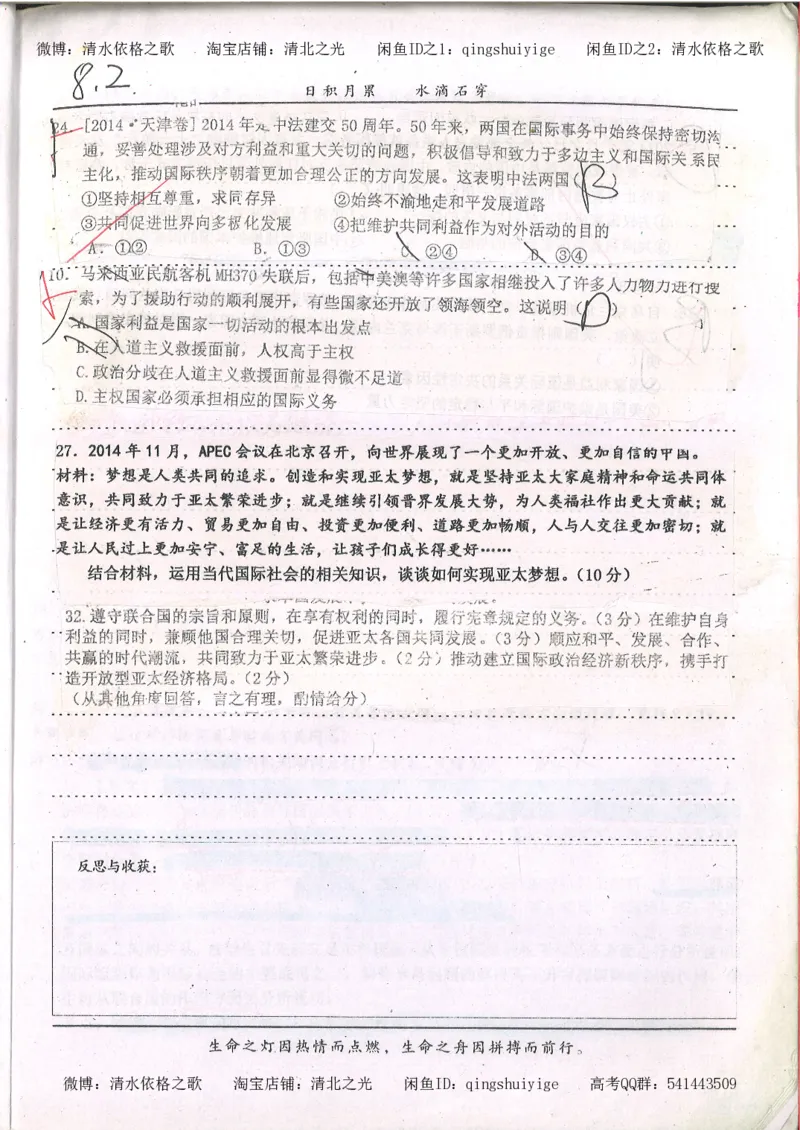 微博：清水依格之歌 淘宝店铺：清北之光 闲鱼ID之1：qingshuiyige 闲鱼ID之2：清水依格之歌
8.2.
日积月累 水滴石穿
24. [2014·天津卷] 2014年是中法建交50周年。50年来，两国在国际事务中始终保持密切沟
通，妥善处理涉及对方利益和重大关切的问题，积极倡导和致力于多边主义和国际关系民
主化，推动国际秩序朝着更加合理公正的方向发展。这表明中法两国( B )
①坚持相互尊重，求同存异 ②始终不渝地走和平发展道路
③共同促进世界向多极化发展 ④把维护共同利益作为对外活动的目的
A. ①② B. ①③ C. ②④ D. ③④
10. 马来西亚民航客机MH370失联后，包括中美澳等许多国家相继投入了许多人力物力进行搜
索，为了援助行动的顺利展开，有些国家还开放了领海领空。这说明( D )
A. 国家利益是国家一切活动的根本出发点
B. 在人道主义救援面前，人权高于主权
C. 政治分歧在人道主义救援面前显得微不足道
D. 主权国家必须承担相应的国际义务
27. 2014年11月，APEC会议在北京召开，向世界展现了一个更加开放、更加自信的中国。
材料：梦想是人类共同的追求。创造和实现亚太梦想，就是坚持亚太大家庭精神和命运共同体
意识，共同致力于亚太繁荣进步；就是继续引领晋界发展大势，为人类福社作出更大贡献；就
是让经济更有活力、贸易更加自由、投资更加便利、道路更加畅顺，人与人交往更加密切；就
是让人民过上更加安宁、富足的生活，让孩子们成长得更好……
结合材料，运用当代国际社会的相关知识，谈谈如何实现亚太梦想。(10分)
32. 遵守联合国的宗旨和原则，在享有权利的同时，履行宪章规定的义务。(3分) 在维护自身
利益的同时，兼顾他国合理关切，促进亚太各国共同发展。(3分) 顺应和平、发展、合作、
共赢的时代潮流，共同致力于亚太繁荣进步。(2分) 推动建立国际政治经济新秩序，携手打
造开放型亚太经济格局。(2分)
(从其他角度回答，言之有理，酌情给分)
反思与收获：
生命之灯因热情而点燃，生命之舟因拼搏而前行。
微博：清水依格之歌 淘宝店铺：清北之光 闲鱼ID：qingshuiyige 高考QQ群：541443509